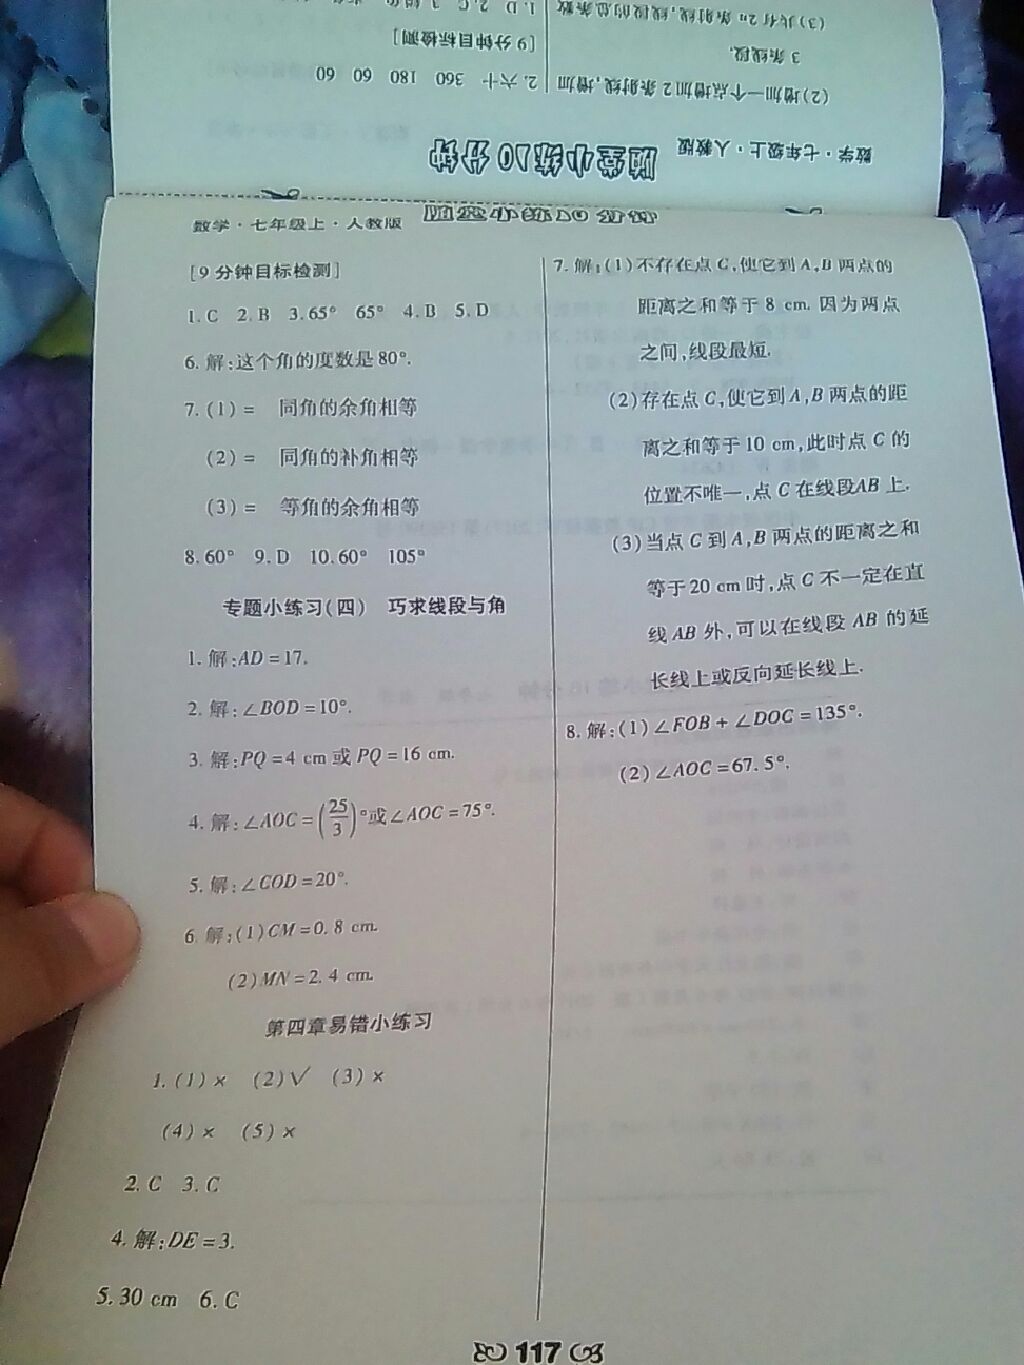 (2)增加一个点增加2条射线,增加
3条线段.
(3)共有2n条射线,线段的总条数
2.六十 360 180 60 60
[9分钟目标检测]
数学·七年级上·人教版
随堂小练10分钟
数学·七年级上·人教版
随堂小练10分钟
[9分钟目标检测]
1.C 2.B 3.65° 65° 4.B 5.D
6.解:这个角的度数是80°.
7.(1)= 同角的余角相等
(2)= 同角的补角相等
(3)= 等角的余角相等
8.60° 9.D 10.60° 105°
专题小练习(四) 巧求线段与角
1.解:AD=17.
2.解:∠BOD=10°.
3.解:PQ=4 cm或PQ=16 cm.
4.解:∠AOC=(25/3)°或∠AOC=75°.
5.解:∠COD=20°.
6.解:(1)CM=0.8 cm.
(2)MN=2.4 cm.
第四章易错小练习
1.(1)× (2)√ (3)×
(4)× (5)×
2.C 3.C
4.解:DE=3.
5.30 cm 6.C
7.解:(1)不存在点C,使它到A,B两点的
距离之和等于8 cm.因为两点
之间,线段最短.
(2)存在点C,使它到A,B两点的距
离之和等于10 cm,此时点C的
位置不唯一,点C在线段AB上.
(3)当点C到A,B两点的距离之和
等于20 cm时,点C不一定在直
线AB外,可以在线段AB的延
长线上或反向延长线上.
8.解:(1)∠FOB+∠DOC=135°.
(2)∠AOC=67.5°.
117